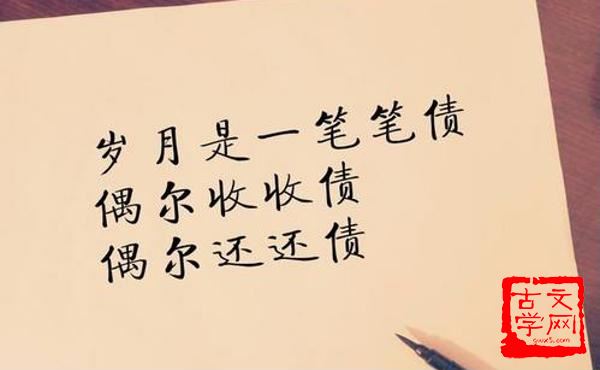 岁月是一笔笔债
偶尔收收债
偶尔还还债
古文
学网
gwx5.com